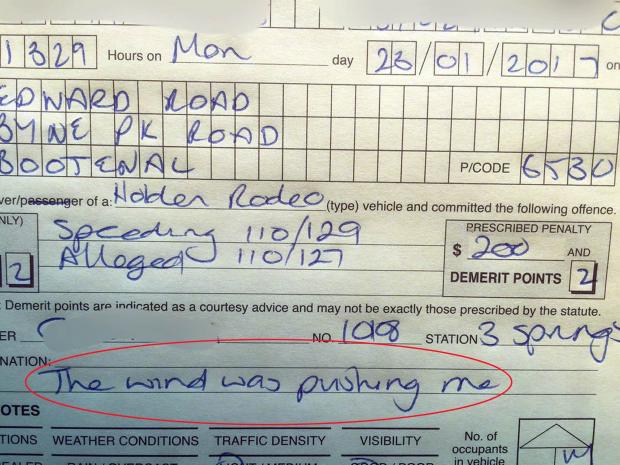 1329 Hours on Mon day 23/01/2017 on
EDWARD ROAD
BYNE PK ROAD
BOOTENAL P/CODE 6530
ver/passenger of a: Holden Rodeo (type) vehicle and committed the following offence.
NLY) Speeding 110/129 PRESCRIBED PENALTY
2 Alleged 110/127 $ 200 AND
DEMERIT POINTS 2
: Demerit points are indicated as a courtesy advice and may not be exactly those prescribed by the statute.
ER NO. 1018 STATION 3 Springs
NATION:
The wind was pushing me
OTES
TIONS WEATHER CONDITIONS TRAFFIC DENSITY VISIBILITY No. of
occupants
in vehicle